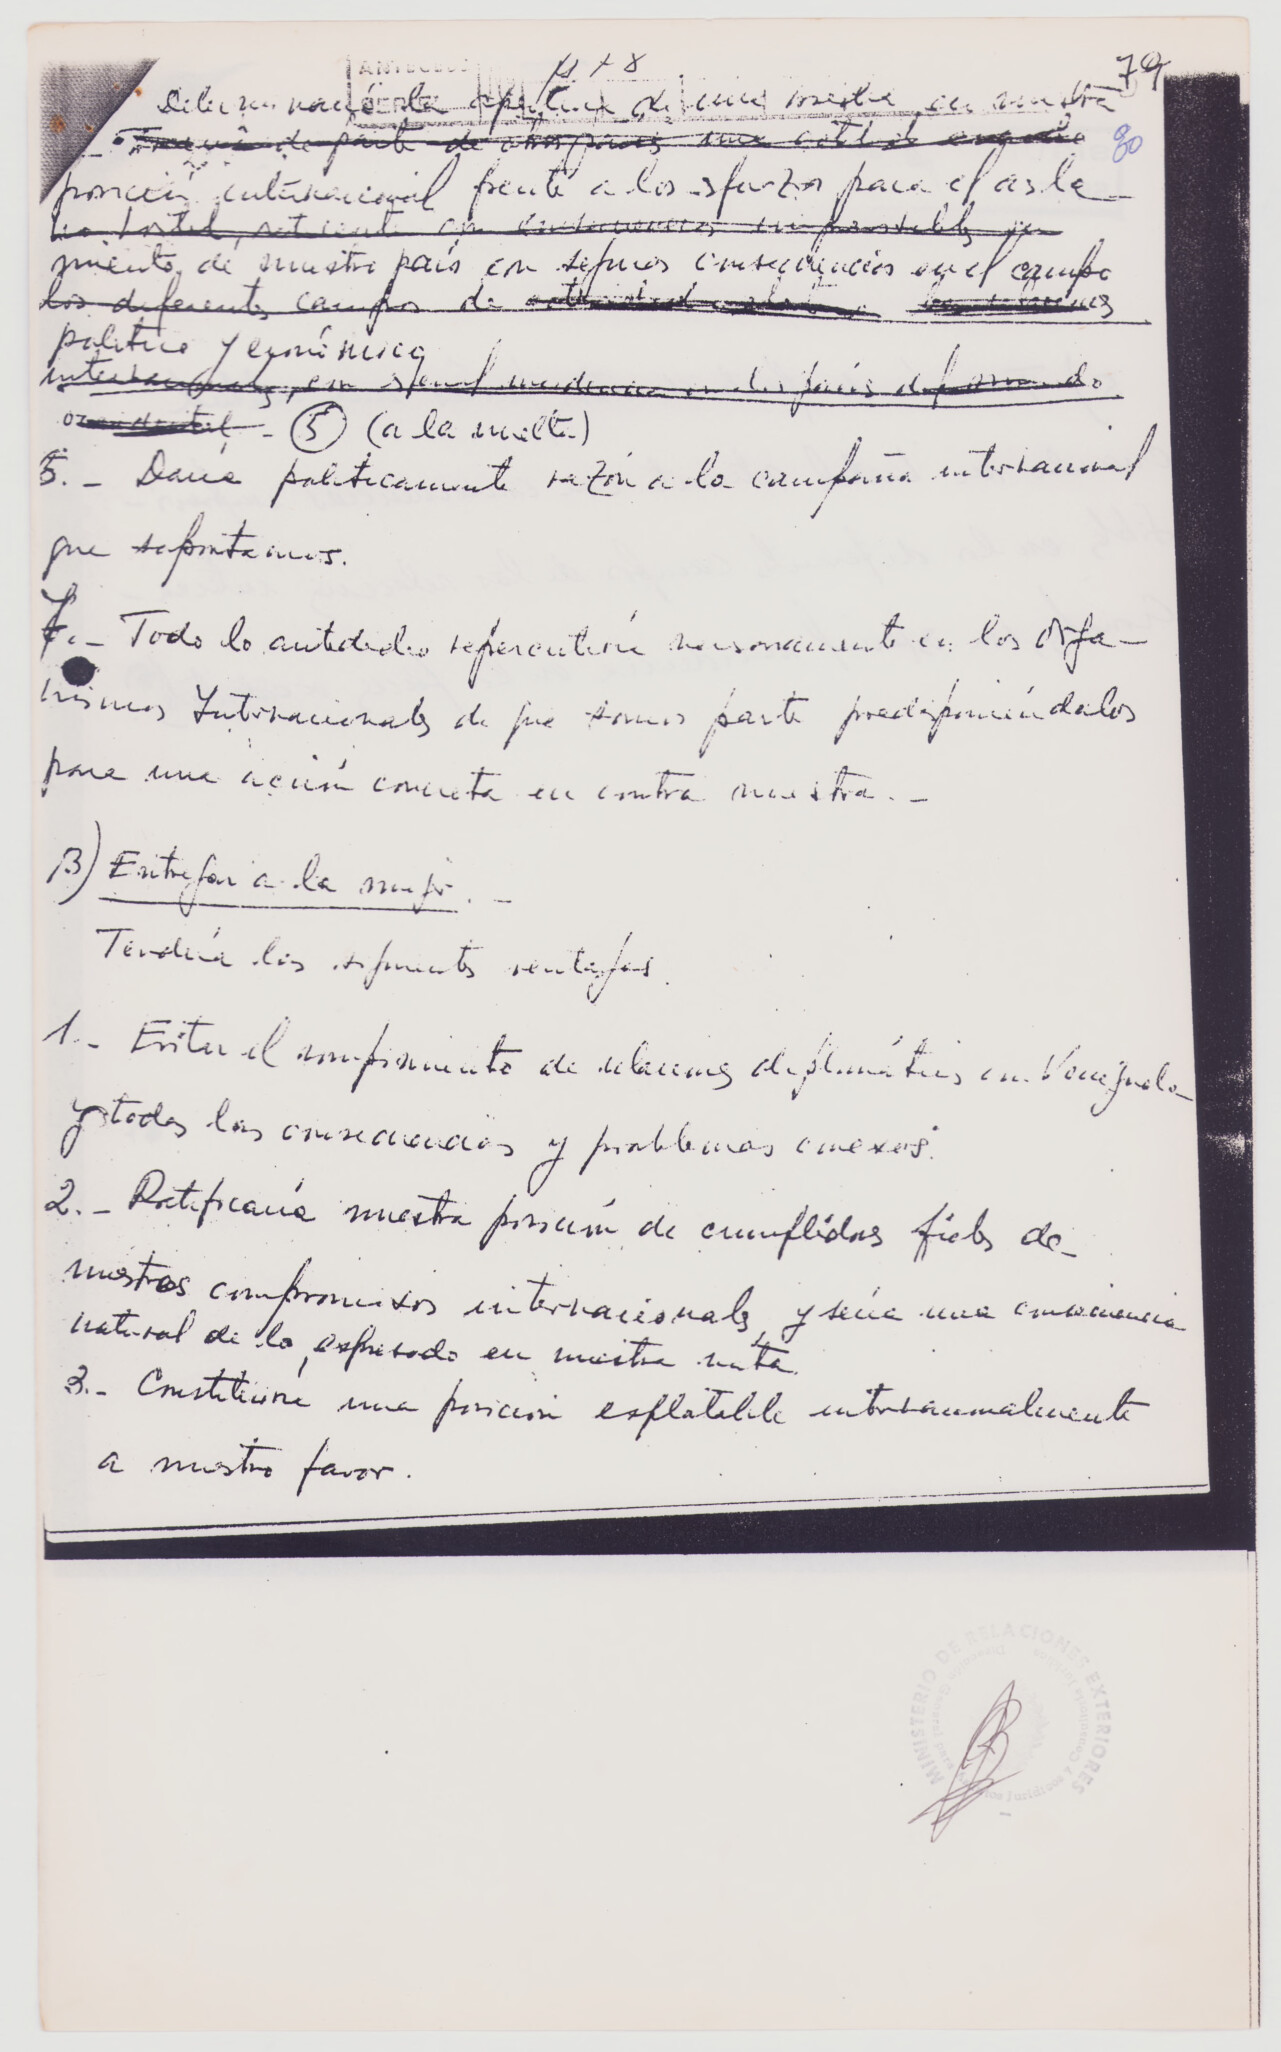 79
80
Determinaría la apertura de una brecha en nuestra
de parte de otros países una
posición internacional frente a los esfuerzos para el aisla-
miento de nuestro país con seguras consecuencias en el campo
los diferentes campos de
político y económico
occidental. - ⑤ (a la vuelta)
5.- Daría políticamente razón a la campaña internacional
que soportamos.
7.- Todo lo antedicho repercutiría en los Orga-
nismos Internacionales de que somos parte predisponiéndolos
para una acción concreta en contra nuestra.-
B) Entregar a la mujer.-
Tendría las siguientes ventajas.
1.- Evitar el rompimiento de relaciones diplomáticas con Venezuela
y todas las consecuencias y problemas conexos.
2.- Ratificaría nuestra posición de cumplidores fieles de
nuestros compromisos internacionales y sería una consecuencia
natural de lo expresado en nuestra nota.
3.- Constituiría una posición explotable internacionalmente
a nuestro favor.
MINISTERIO DE RELACIONES EXTERIORES